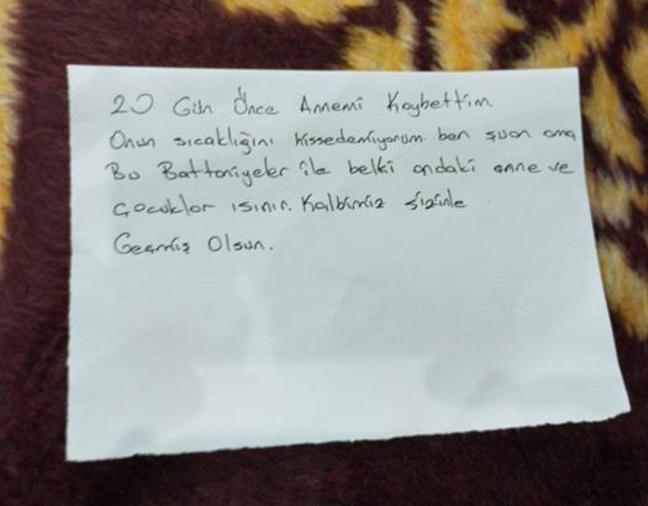 20 Gün Önce Annemi Kaybettim.
Onun sıcaklığını hissedemiyorum ben şuan ama
Bu Battaniyeler ile belki ordaki anne ve
Çocuklar ısınır. Kalbimiz sizinle
Geçmiş Olsun.